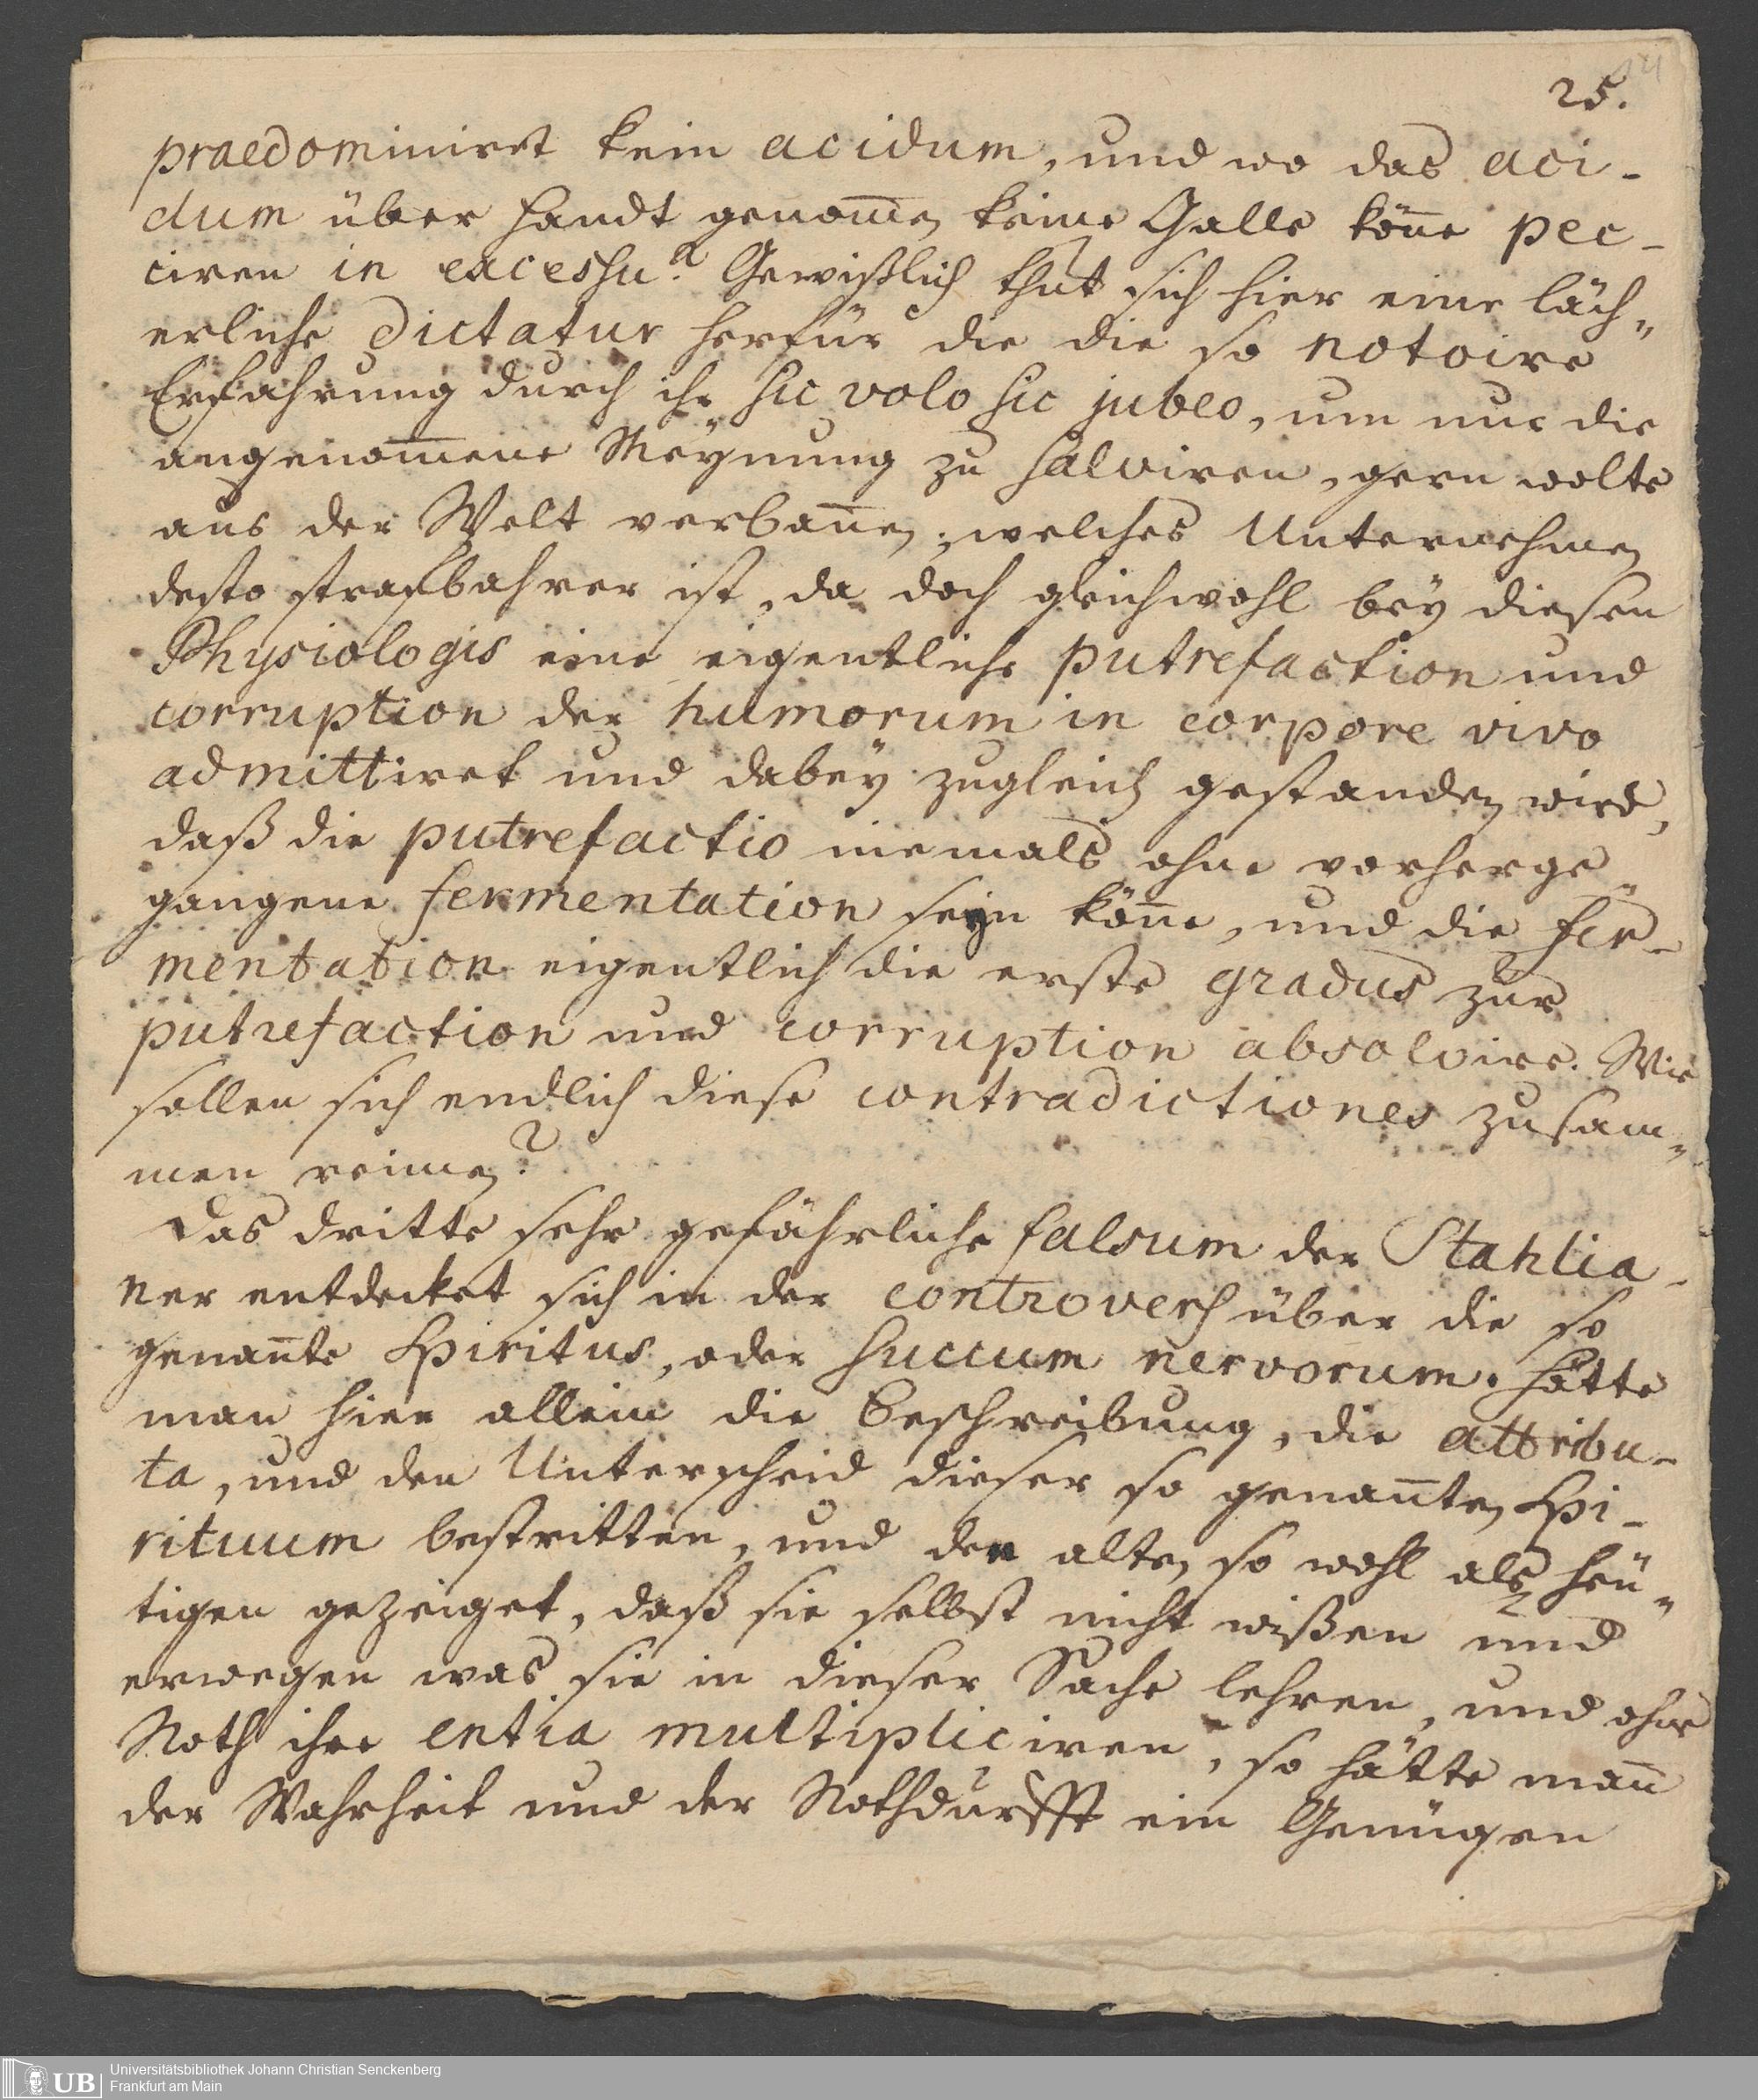 25.
praedominiret kein acidum, und wo das aci-
dum über Handt genom̄en keine Galle kön̄e pec-
ciren in excessu? Gewißlich thut sich hier eine läch„
erliche Dictatur herfür die die so notoire
Erfahrung durch ihr sic volo sic jubeo, um nur die
angenom̄ene Meÿnung zu salviren, gern wolte
aus der Welt verban̄en, welches Unternehmen
desto strafbahrer ist, da doch gleichwohl beÿ diesen
Physiologis eine eigentliche putrefaction und
corruption der humorum in corpore vivo
admittiret und dabeÿ zugleich gestanden wird,
daß die putrefactio niemals ohne vorherge„
gangene fermentation seÿn kön̄e, und die fer-
mentation eigentlich die erste gradus zur
putrefaction und corruption absolvire. Wie
sollen sich endlich diese contradictiones zusam„
men reimen?
Das dritte sehr gefährliche falsum der Stahlia-
ner entdecket sich in der controvers über die so
genan̄te Spiritus, oder succum nervorum. Hätte
man hier allein die Beschreibung, die attribu-
ta, und den Unterscheid dieser so genan̄ten Spi-
rituum bestritten, und den alten so wohl als heü„
tigen gezeiget, daß sie selbst nicht wißen und
erwegen was sie in dieser Sache lehren, und ohne
Noth ihre entia multipliciren, so hätte man̄
der Wahrheit und der Nothdurfft ein Genügen
UB
Universitätsbibliothek Johann Christian Senckenberg
Frankfurt am Main